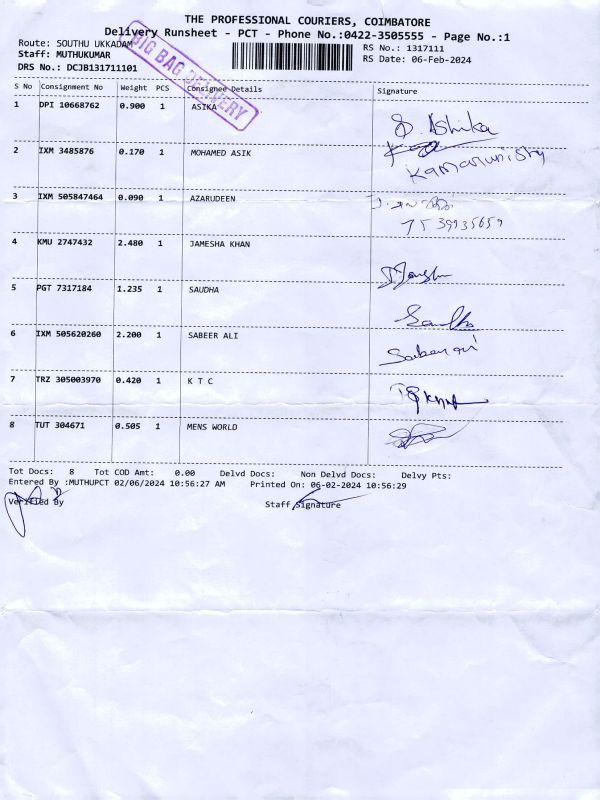 THE PROFESSIONAL COURIERS, COIMBATORE
Delivery Runsheet - PCT - Phone No.:0422-3505555 - Page No.:1
Route: SOUTHU UKKADAM
RS No.: 1317111
Staff: MUTHUKUMAR
RS Date: 06-Feb-2024
DRS No.: DCJB131711101
BIG BAG DELIVERY
S No Consignment No Weight PCS Consignee Details Signature
1 DPI 10668762 0.900 1 ASIKA
S. Ashika
2 IXM 3485876 0.170 1 MOHAMED ASIK
3 IXM 505847464 0.090 1 AZARUDEEN
7539935659
4 KMU 2747432 2.480 1 JAMESHA KHAN
5 PGT 7317184 1.235 1 SAUDHA
Saudha
6 IXM 505620260 2.200 1 SABEER ALI
7 TRZ 305003970 0.420 1 K T C
8 TUT 304671 0.505 1 MENS WORLD
Tot Docs: 8 Tot COD Amt: 0.00 Delvd Docs: Non Delvd Docs: Delvy Pts:
Entered By :MUTHUPCT 02/06/2024 10:56:27 AM Printed On: 06-02-2024 10:56:29
Verified By Staff Signature